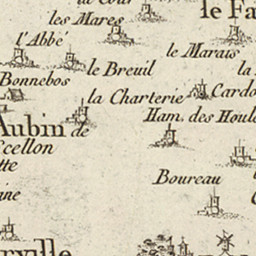 la Cour
les Mares
le Fa
l'Abbé
le Marais
Bonnebos
le Breuil
la
la Charterie
Cardo
Aubin de
Ham. des Houle
Scellon
tte
Boureau
ine
rville